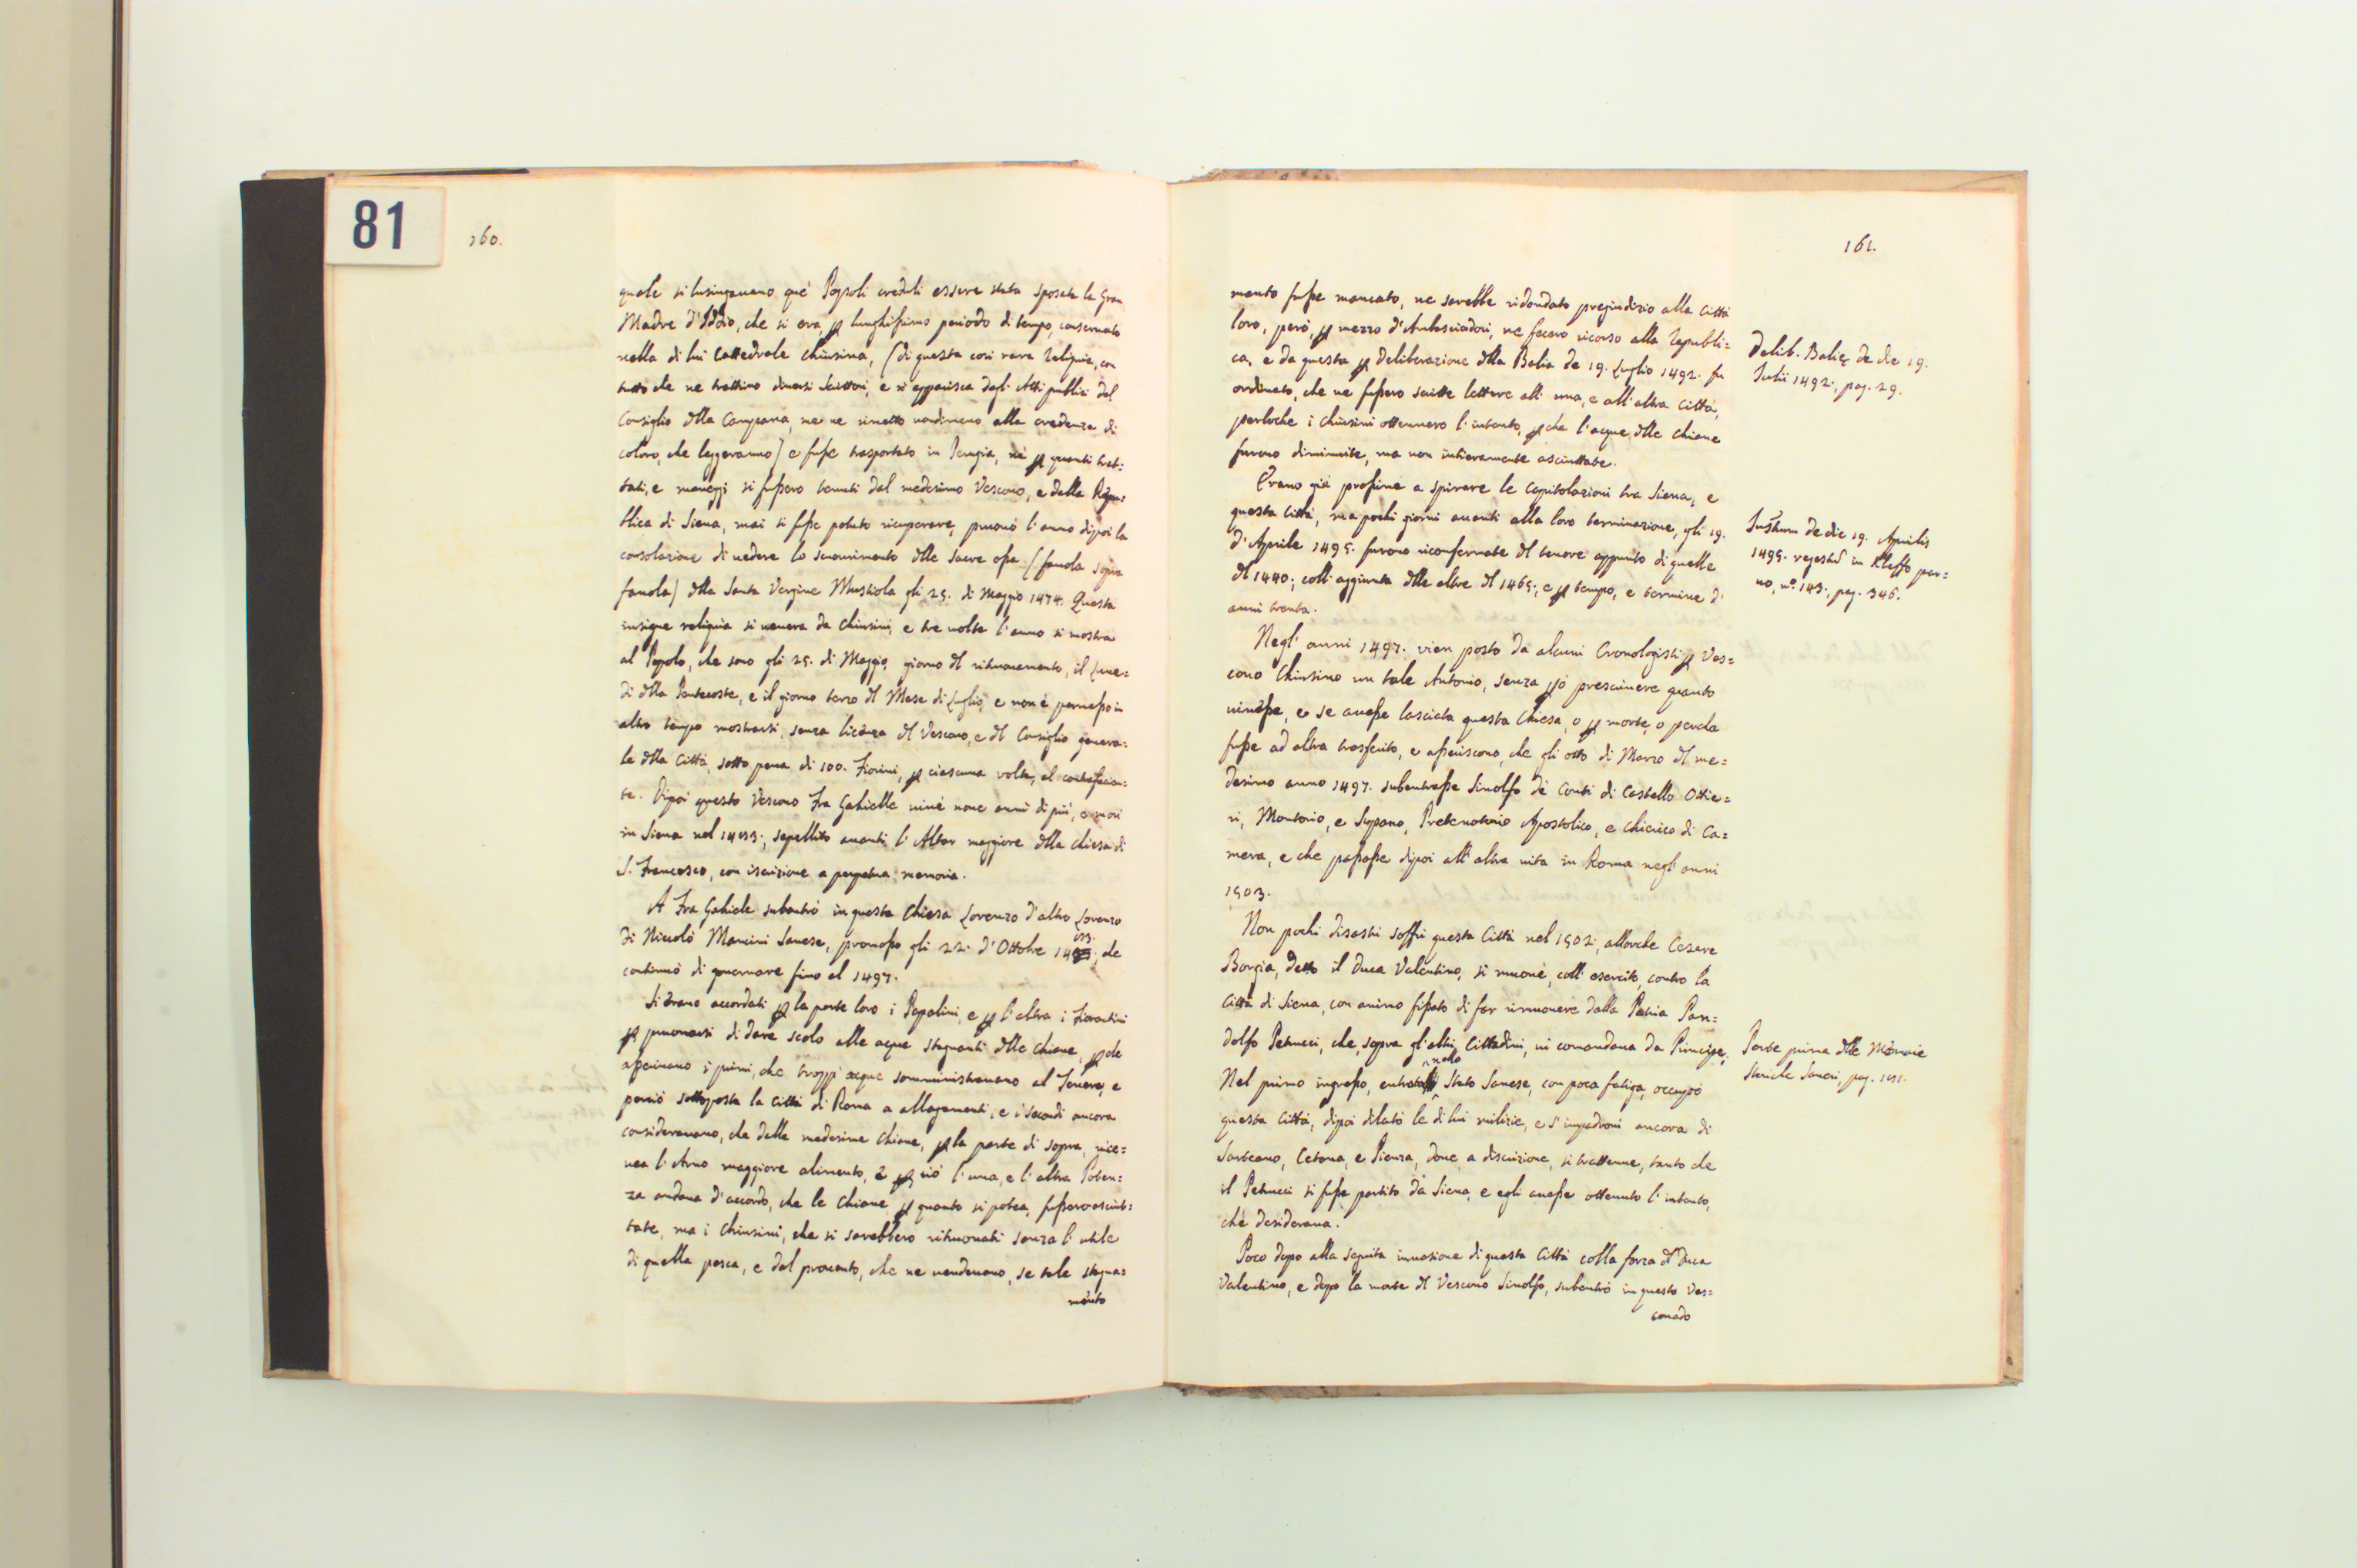 81
160.
quale si lusingauano que' Popoli creduli essere stata sposata la Gran
Madre d'Iddio, che si era, p lunghissimo periodo di tempo, conseruato
nella di lui Cattedrale Chiusina, (di questa così rara Reliquia, con
tutto che ne trattino diuersi Scrittori, e si apparisca dagl'Atti publici del
Consiglio dlla Campana, me ne rimetto nondimeno alla credenza di
coloro, che leggeranno) e fusse trasportato in Perugia, nè p quanti trat=
tati, e maneggi si fussero tenuti dal medesimo Vescouo, e dalla Repu=
blica di Siena, mai si fusse potuto ricuperare, prouò l'anno dipoi la
consolazione di uedere lo scuoprimento dlle sacre ossa (fauola sopra
fauola) dlla Santa Vergine Mustiola gli 25. di Maggio 1474. Questa
insigne reliquia si uenera da Chiusini, e tre uolte l'anno si mostra
al Popolo, che sono gli 25. di Maggio, giorno dl ritruouamento, il Lune=
dì dlla Pentecoste, e il giorno terzo dl Mese di Luglio, e non è permesso in
altro tempo mostrarsi, senza licenza dl Vescouo, e dl Consiglio genera=
le dlla Città, sotto pena di 100. Fiorini, p ciascuna volta, al contrafacien=
te. Dipoi questo Vescouo Fra Gabielle uiuè noue anni di più, e morì
in Siena nel 1483., sepellito auanti l'Altar maggiore dlla Chiesa di
S. Francesco, con iscrizione a perpetua memoria.
A Fra Gabiele subentrò in questa Chiesa Lorenzo d'altro Lorenzo
di Niccolò Mancini Sanese, promosso gli 22. d'Ottobre 1483., che
continuò di gouernare fino al 1497.
Si erano accordati p la parte loro i Papalini, e p l'altra i Fiorentini
p pruouarsi di dare scolo alle acque stagnanti dlle Chiane, p che
asseriuano i primi, che troppi acque somministrauano al Teuere, e
perciò sottoposta la Città di Roma a allagamenti, e i secondi ancora
considerauano, che dalle medesime Chiane, p la parte di sopra, rice=
uea l'Arno maggiore alimento, e p ciò l'una, e l'altra Poten=
za andaua d'accordo, che le Chiane p quanto si potea, fussero asciut=
tate, ma i Chiusini, che si sarebbero ritruouati senza l'utile
di quella pesca, e dal prouento, che ne uendeuano, se tale stagna=
mento
161.
mento fusse mancato, ne sarebbe ridondato pregiudizio alla Città
loro, però, p mezzo d'Ambasciadori, ne fecero ricorso alla Republi=
ca, e da questa p deliberazione dlla Balìa de 19. Luglio 1492. fu
ordinato, che ne fussero scritte lettere all'una, e all'altra Città,
perloche i Chiusini ottennero l'intento, p che l'acque dlle Chiane
furono diminuite, ma non intieramente asciuttate.
Delib. Balię de die 19.
Julii 1492., pag. 29.
Erano già prossime a spirare le Capitolazioni tra Siena, e
questa Città, ma pochi giorni auanti alla loro terminazione, gli 19.
d'Aprile 1495. furono riconfermate dl tenore appunto di quelle
dl 1440., coll'aggiunta dlle altre dl 1465., e p tempo, e termine d'
anni trenta.
Instrum de die 19. Aprilis
1495. regestũ in Kleffo par=
uo, nº. 143., pag. 346.
Negl'anni 1497. vien posto da alcuni Cronologisti p Ves=
couo Chiusino un tale Antonio, senza pò presciuere quanto
uiuesse, e se auesse lasciata questa Chiesa, o p morte, o perche
fusse ad altra trasferito, e asseriscono, che gli otto di Marzo dl me=
desimo anno 1497. subentrasse Sinolfo de' Conti di Castello Ottie=
ri, Montorio, e Sypano, Protenotario Apostolico, e Chierico di Ca=
mera, e che passasse dipoi all'altra uita in Roma negl'anni
1503.
Non pochi disastri soffrì questa Città nel 1502., allorche Cesare
Borgia, detto il Duca Valentino, si muouè, coll'esercito, contro la
Città di Siena, con animo fissato di far rimuouere dalla Patria Pan=
dolfo Petrucci, che, sopra gl'altri Cittadini, ui comandaua da Principe.
Nel primo ingresso, entrato nello Stato Sanese, con poca fatiga, occupò
questa Città, dipoi dilatò le di lui milizie, e s'impadronì ancora di
Sarteano, Cetona, e Pienza, doue, a discrizione, si trattenne, tanto che
il Petrucci si fusse partito da Siena, e egli auesse ottenuto l'intento,
che desideraua.
Parte prima dlle Memorie
Storiche Sanesi, pag. 151.
Poco dopo alla seguita inuasione di questa Città colla forza dl Duca
Valentino, e dopo la morte dl Vescouo Sinolfo, subentrò in questo Ves=
couado